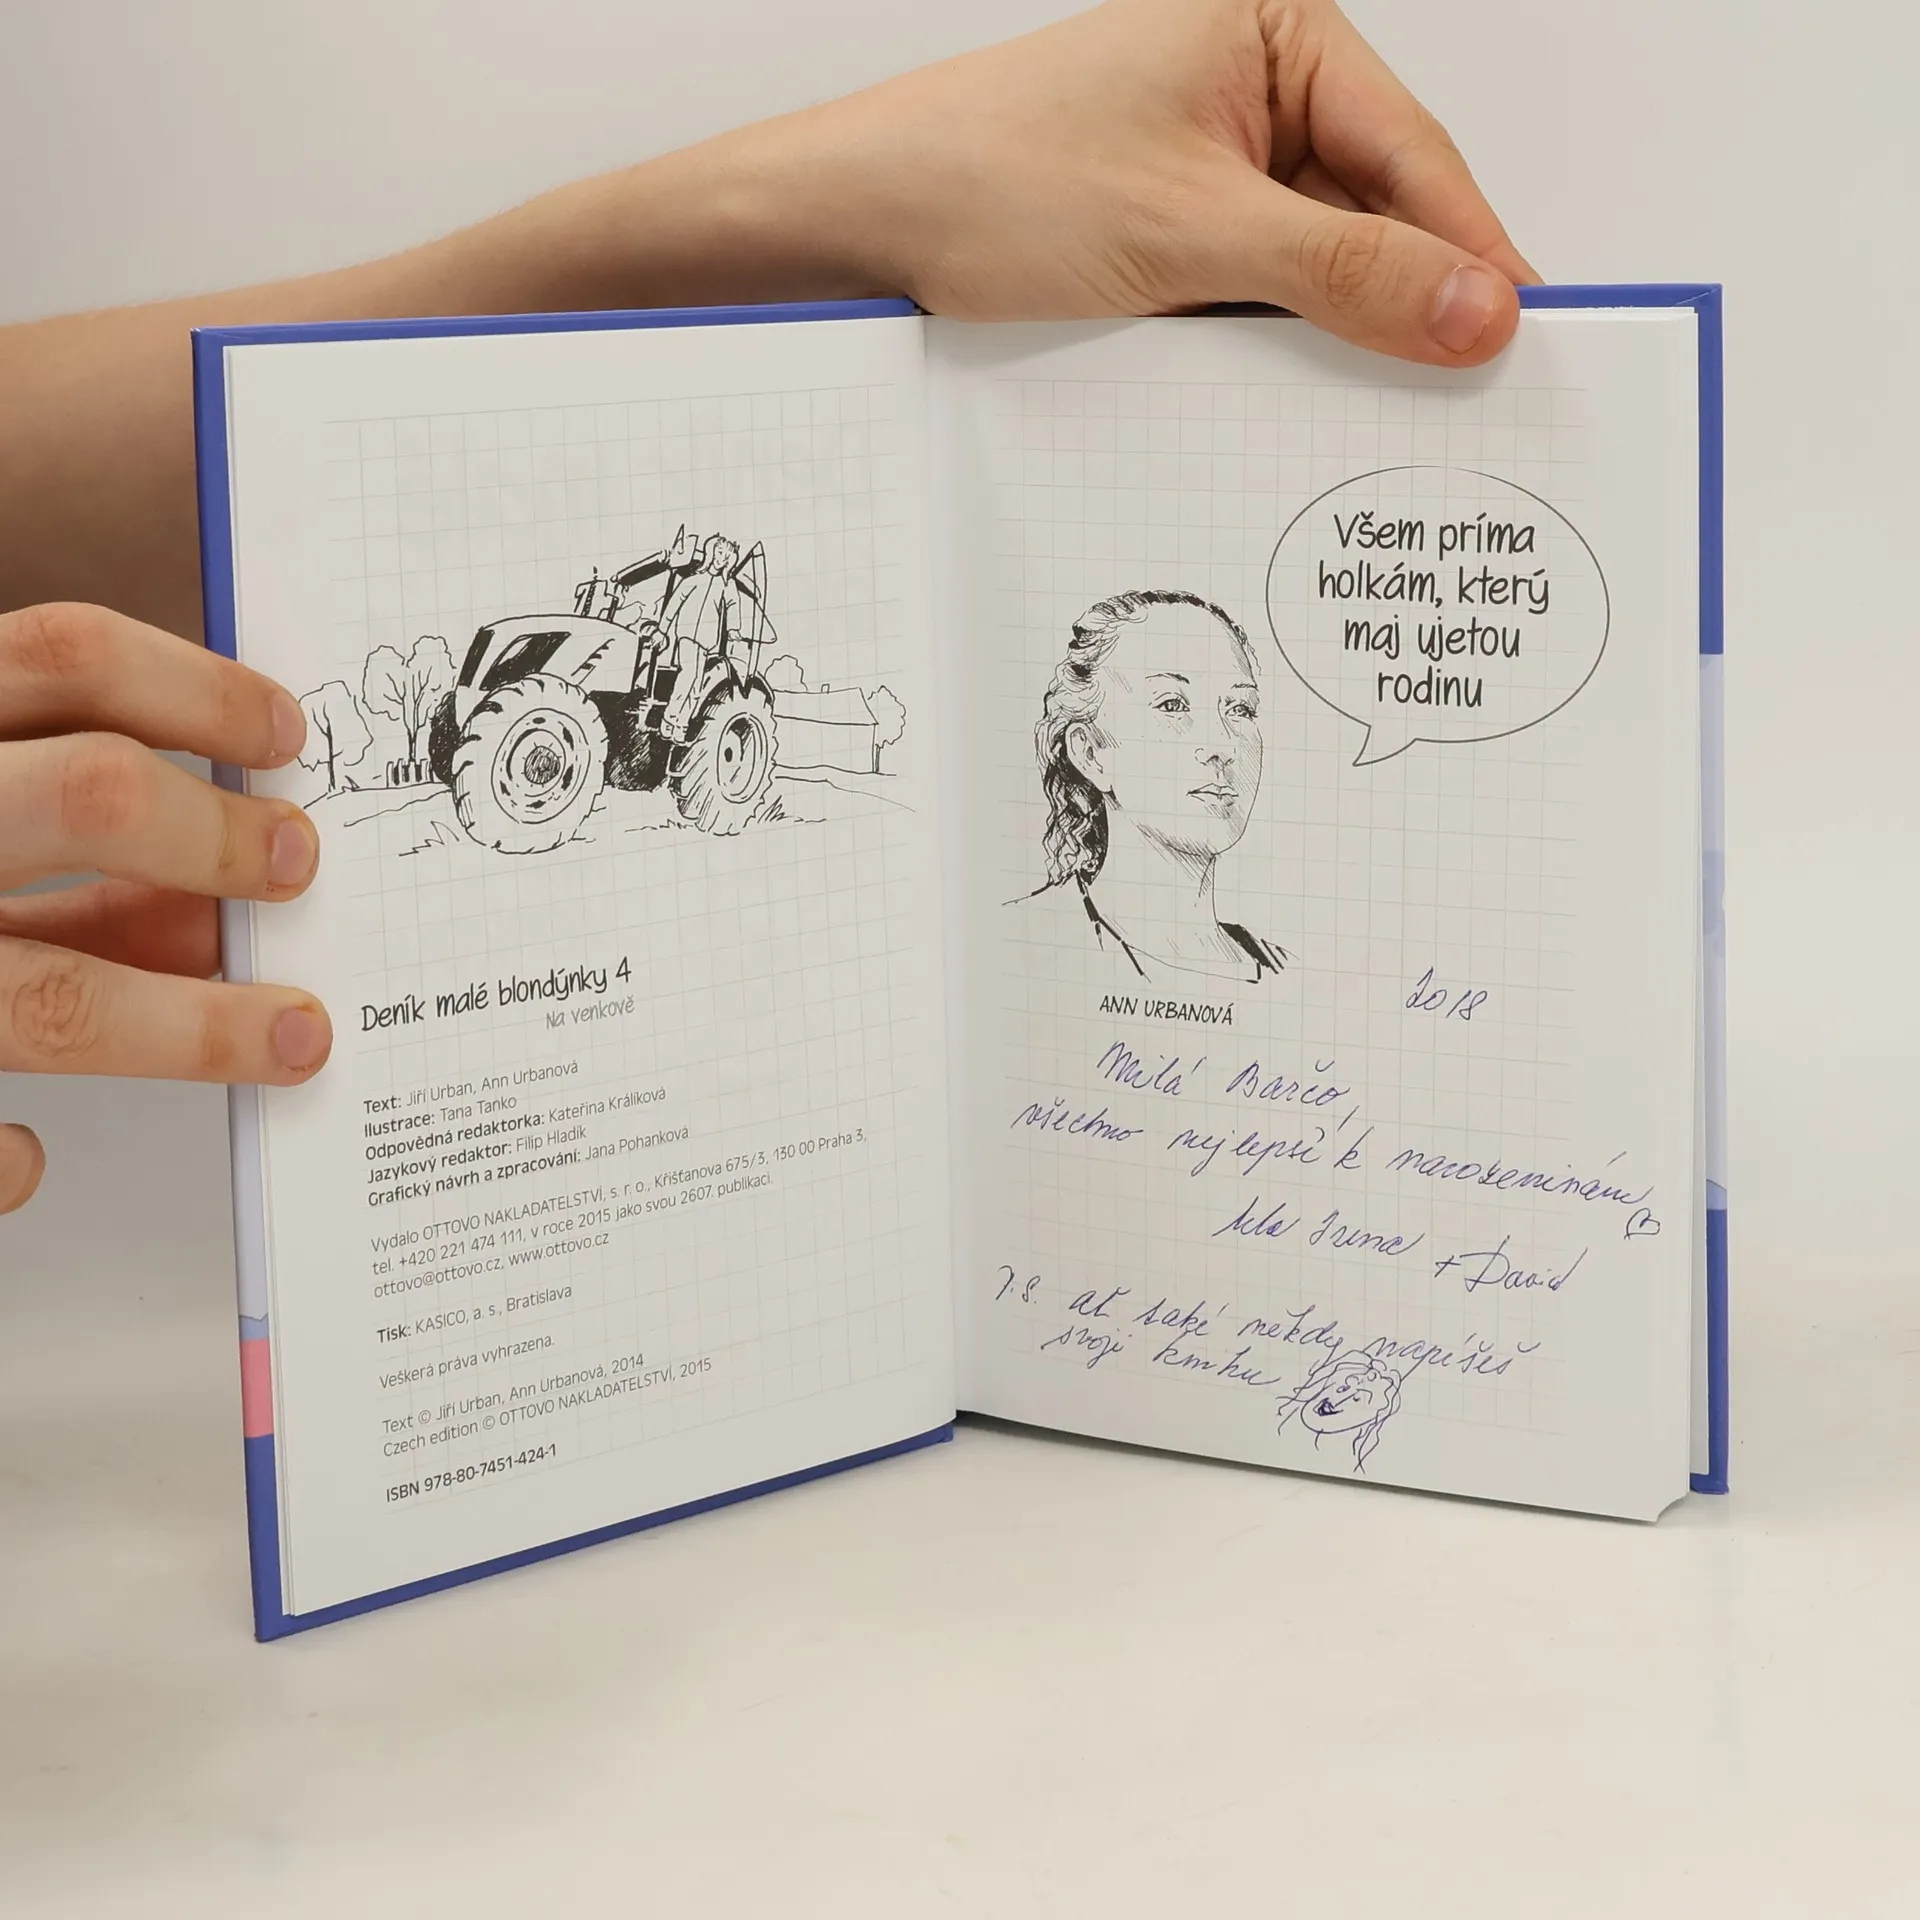 Deník malé blondýnky 4
Na venkově
Text: Jiří Urban, Ann Urbanová
Ilustrace: Tana Tanko
Odpovědná redaktorka: Kateřina Králíková
Jazykový redaktor: Filip Hladík
Grafický návrh a zpracování: Jana Pohanková
Vydalo OTTOVO NAKLADATELSTVÍ, s. r. o., Křišťanova 675/3, 130 00 Praha 3,
tel. +420 221 474 111, v roce 2015 jako svou 2607. publikaci.
ottovo@ottovo.cz, www.ottovo.cz
Tisk: KASICO, a. s., Bratislava
Veškerá práva vyhrazena.
Text © Jiří Urban, Ann Urbanová, 2014
Czech edition © OTTOVO NAKLADATELSTVÍ, 2015
ISBN 978-80-7451-424-1
Všem príma
holkám, který
maj ujetou
rodinu
ANN URBANOVÁ
2018
Milá Barčo,
všechno nejlepší k narozeninám
Irena + David
P.S. ať také někdy napíšeš
svoji knihu